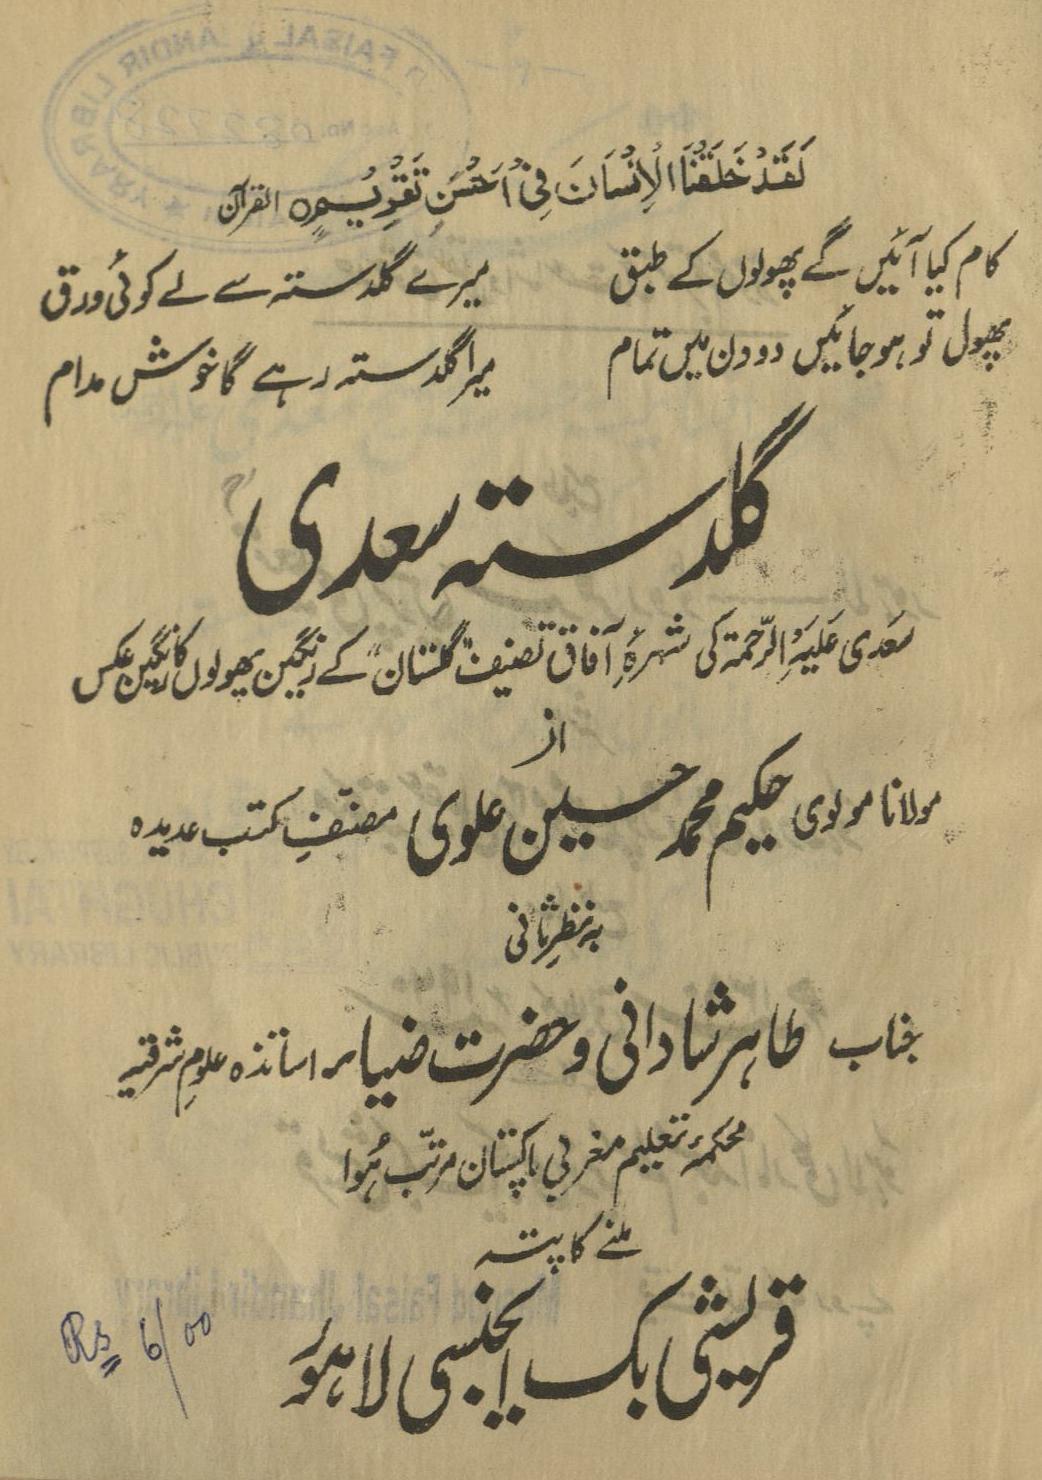 لَقَدْ خَلَقْنَا الْاِنْسَانَ فِیْ اَحْسَنِ تَقْوِیْمٍ ○ القرآن
کام کیا آئیں گے پھولوں کے طبق میرے گلدستہ سے لے کوئی ورق
پھول تو ہو جائیں دو دن میں تمام میرا گلدستہ رہے گا خوش مدام
گلدستہ سعدی
سعدی عَلَیْہِ الرَّحمۃ کی شہرۂ آفاق تصنیف "گلستان" کے رنگین پھولوں کا رنگین عکس
از
مولانا مولوی حکیم محمد حسین علوی مصنّفِ کتب عدیدہ
بہ نظرِ ثانی
جناب طاہر شادانی و حضرت ضیاء اساتذہ علومِ شرقیہ
محکمۂ تعلیم مغربی پاکستان مرتّب ہُوا
ملنے کا پتہ
قریشی بک ایجنسی لاہور
Rs 6/00